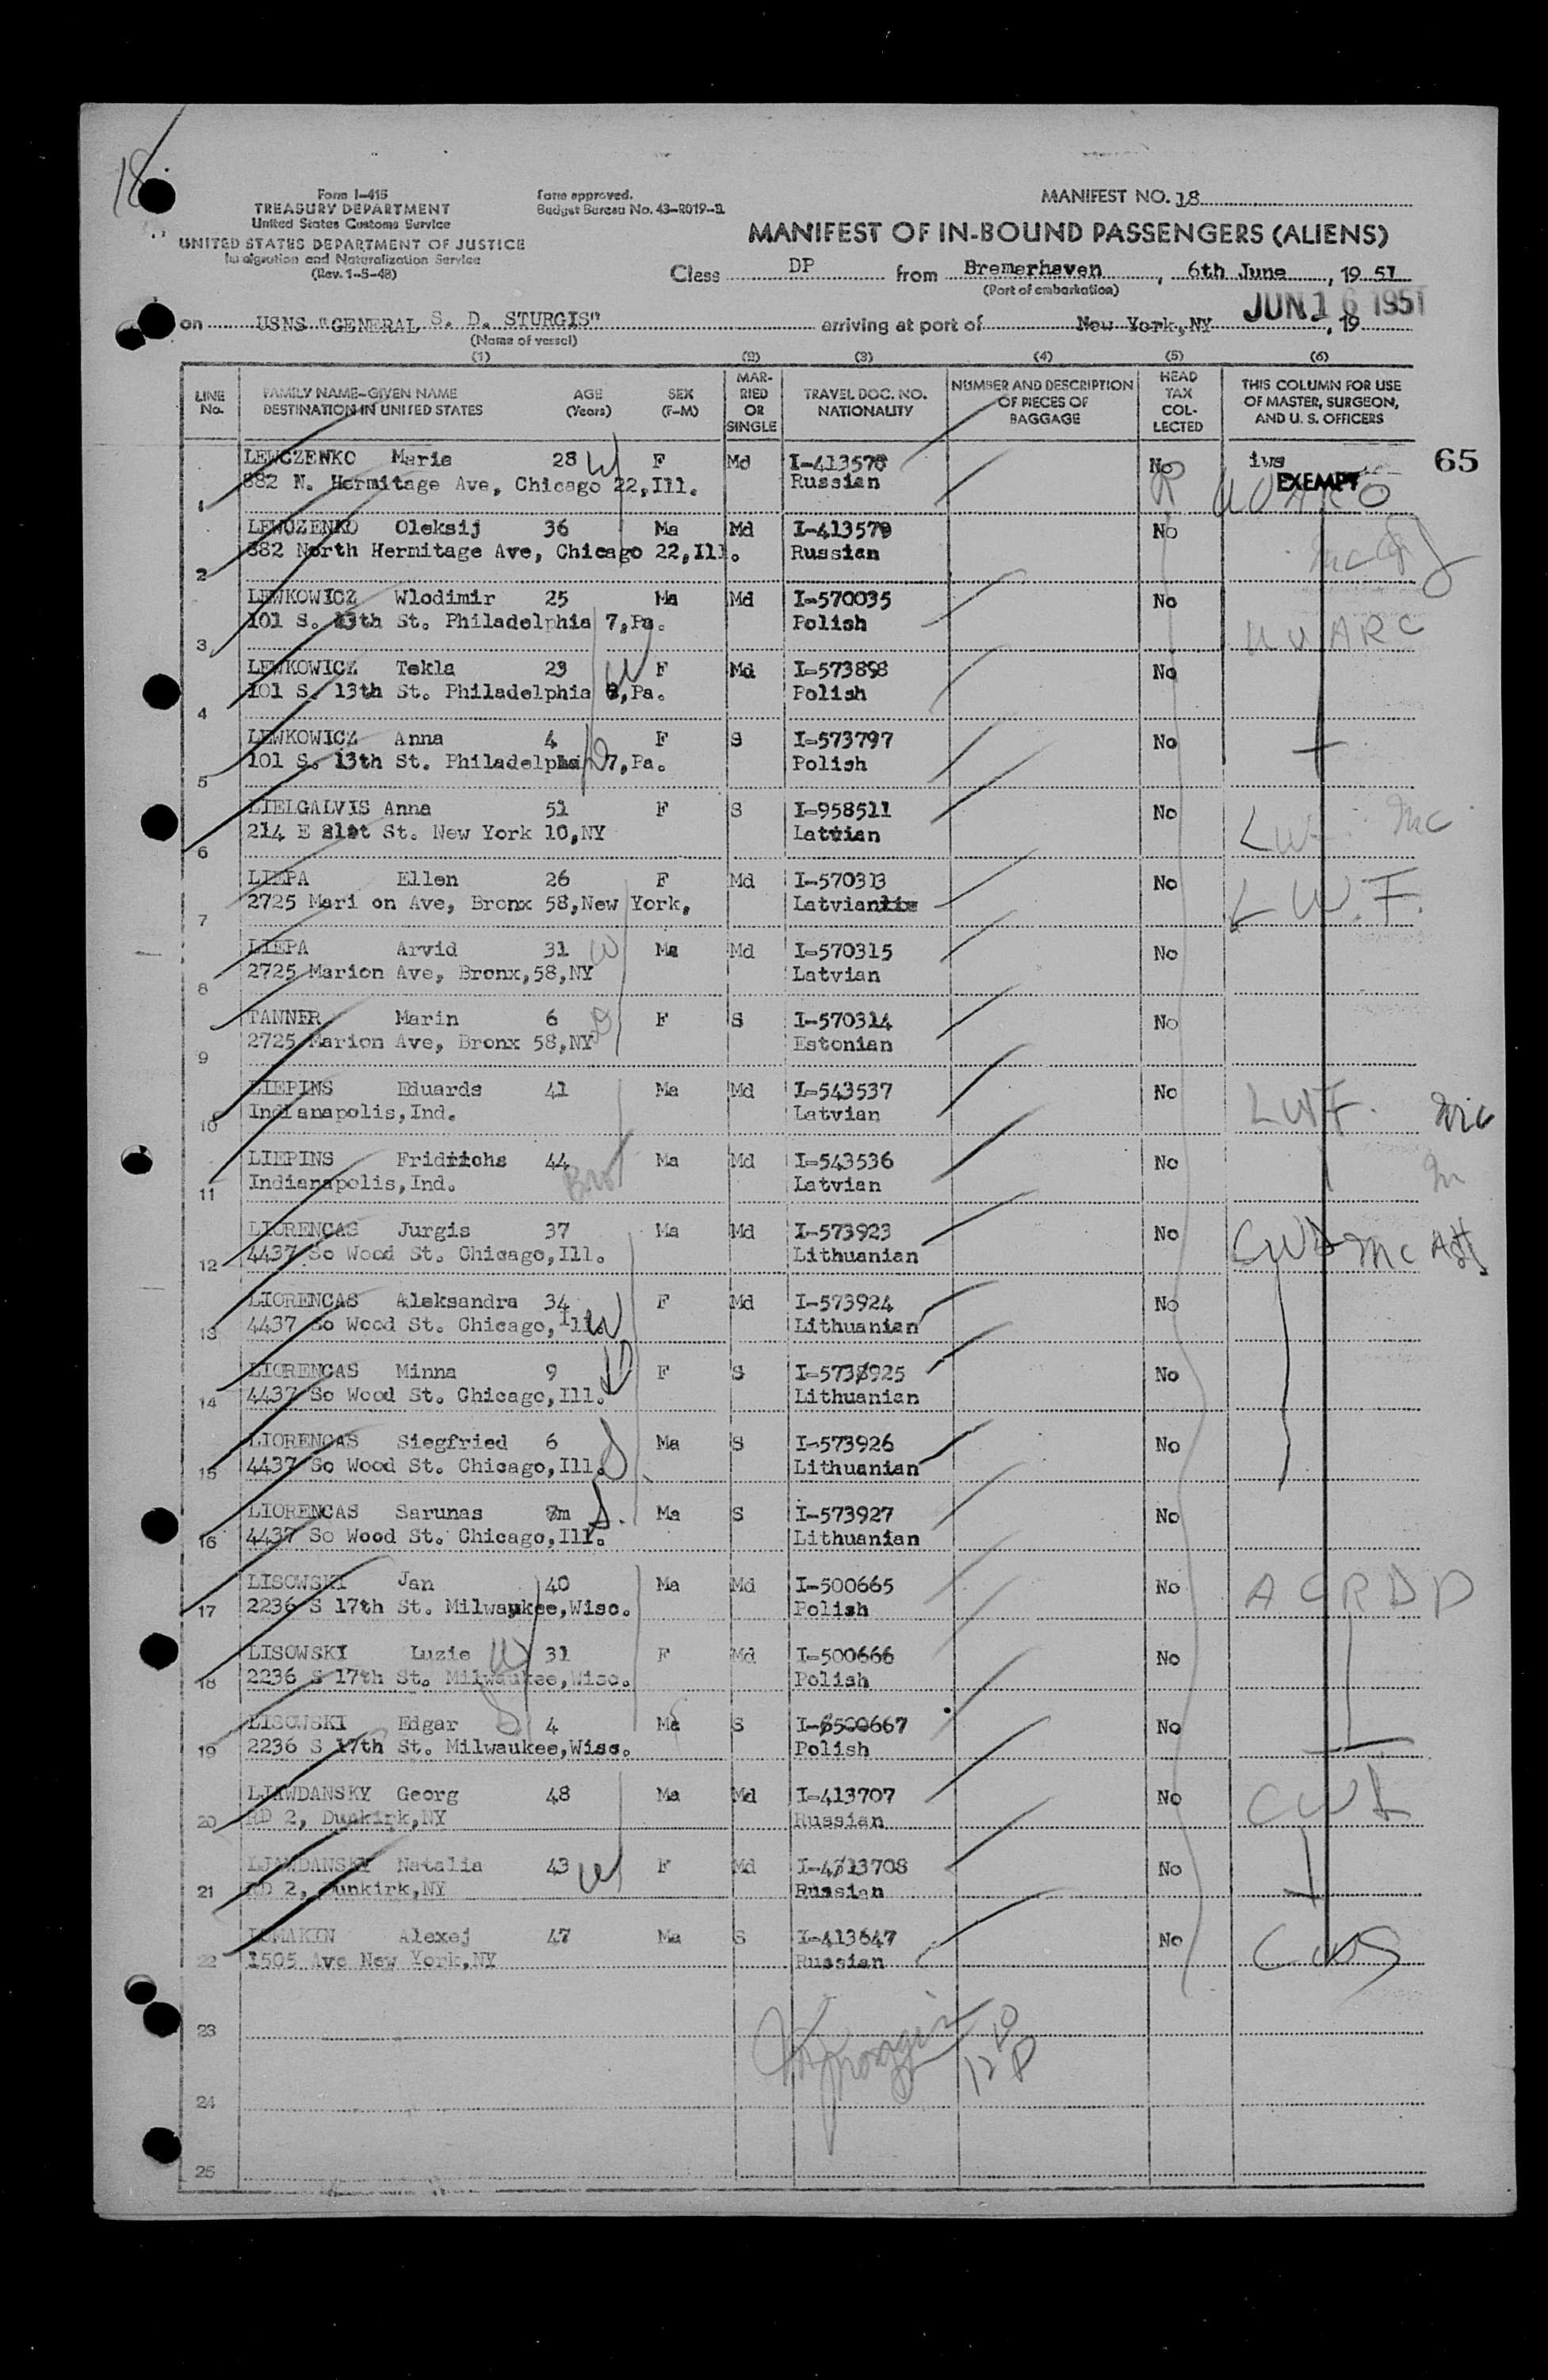 18
Form I-415
TREASURY DEPARTMENT
United States Customs Service
UNITED STATES DEPARTMENT OF JUSTICE
Immigration and Naturalization Service
(Rev. 1-5-48)
Form approved.
Budget Bureau No. 43-R019-2.
MANIFEST NO. 18
MANIFEST OF IN-BOUND PASSENGERS (ALIENS)
Class DP from Bremerhaven, 6th June, 1951
(Port of embarkation)
JUN 16 1951
on USNS "GENERAL S. D. STURGIS" arriving at port of New York, NY, 19
(Name of vessel)
(1) (2) (3) (4) (5) (6)
LINE No. FAMILY NAME-GIVEN NAME DESTINATION IN UNITED STATES AGE (Years) SEX (F-M) MARRIED OR SINGLE TRAVEL DOC. NO. NATIONALITY NUMBER AND DESCRIPTION OF PIECES OF BAGGAGE HEAD TAX COLLECTED THIS COLUMN FOR USE OF MASTER, SURGEON, AND U. S. OFFICERS
65
LEWCZENKO Maria 28 W F Md I-413578 No iws EXEMPT
1 882 N. Hermitage Ave, Chicago 22,Ill. Russian
LEWCZENKO Oleksij 36 Ma Md I-413579 No
2 882 North Hermitage Ave, Chicago 22,Ill. Russian
LEWKOWICZ Wlodimir 25 Ma Md I-570035 No
3 101 S. 13th St. Philadelphia 7,Pa. Polish UUARC
LEWKOWICZ Tekla 23 W F Md I-573898 No
4 101 S. 13th St. Philadelphia 7,Pa. Polish
LEWKOWICZ Anna 4 F S I-573797 No
5 101 S. 13th St. Philadelphia 7,Pa. Polish
LIELGALVIS Anna 51 F S I-958511 No
6 214 E 21st St. New York 10,NY Latvian LWF Mc
LIEPA Ellen 26 F Md I-570313 No L.W.F.
7 2725 Mari on Ave, Bronx 58,New York, Latvian
LIEPA Arvid 31 W Ma Md I-570315 No
8 2725 Marion Ave, Bronx,58,NY Latvian
TANNER Marin 6 F S I-570314 No
9 2725 Marion Ave, Bronx 58,NY Estonian
LIEPINS Eduards 41 Ma Md I-543537 No LWF. Mc
10 Indianapolis,Ind. Latvian
LIEPINS Fridrichs 44 Bro Ma Md I-543536 No
11 Indianapolis,Ind. Latvian
LIORENCAS Jurgis 37 Ma Md I-573923 No
12 4437 So Wood St. Chicago,Ill. Lithuanian
LIORENCAS Aleksandra 34 W F Md I-573924 No
13 4437 So Wood St. Chicago,Ill. Lithuanian
LIORENCAS Minna 9 D F S I-573925 No
14 4437 So Wood St. Chicago,Ill. Lithuanian
LIORENCAS Siegfried 6 S Ma S I-573926 No
15 4437 So Wood St. Chicago,Ill. Lithuanian
LIORENCAS Sarunas m S. Ma S I-573927 No
16 4437 So Wood St. Chicago,Ill. Lithuanian
LISOWSKI Jan 40 Ma Md I-500665 No ACRDP
17 2236 S 17th St. Milwaukee,Wisc. Polish
LISOWSKI Luzie W 31 F Md I-500666 No
18 2236 S 17th St. Milwaukee,Wisc. Polish
LISOWSKI Edgar S 4 Ma S I-500667 No
19 2236 S 17th St. Milwaukee,Wisc. Polish
LJAWDANSKY Georg 48 Ma Md I-413707 No
20 RD 2, Dunkirk,NY Russian CWS
LJAWDANSKY Natalia 43 W F Md I-413708 No
21 RD 2, Dunkirk,NY Russian
LOMAKIN Alexej 47 Ma S I-413647 No CWS
22 1505 Ave New York,NY Russian
23
24
25